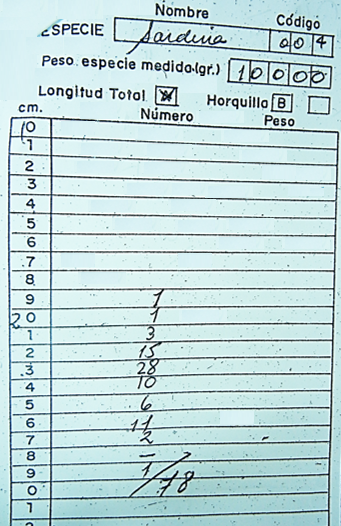 Nombre Código
ESPECIE Sardina 004
Peso especie medida (gr.) 10000
Longitud Total A Horquilla B
cm. Número Peso
10
1
2
3
4
5
6
7
8
9 1
20 1
1 3
2 15
3 28
4 10
5 6
6 11
7 2
8 –
9 1
0 78
1
2